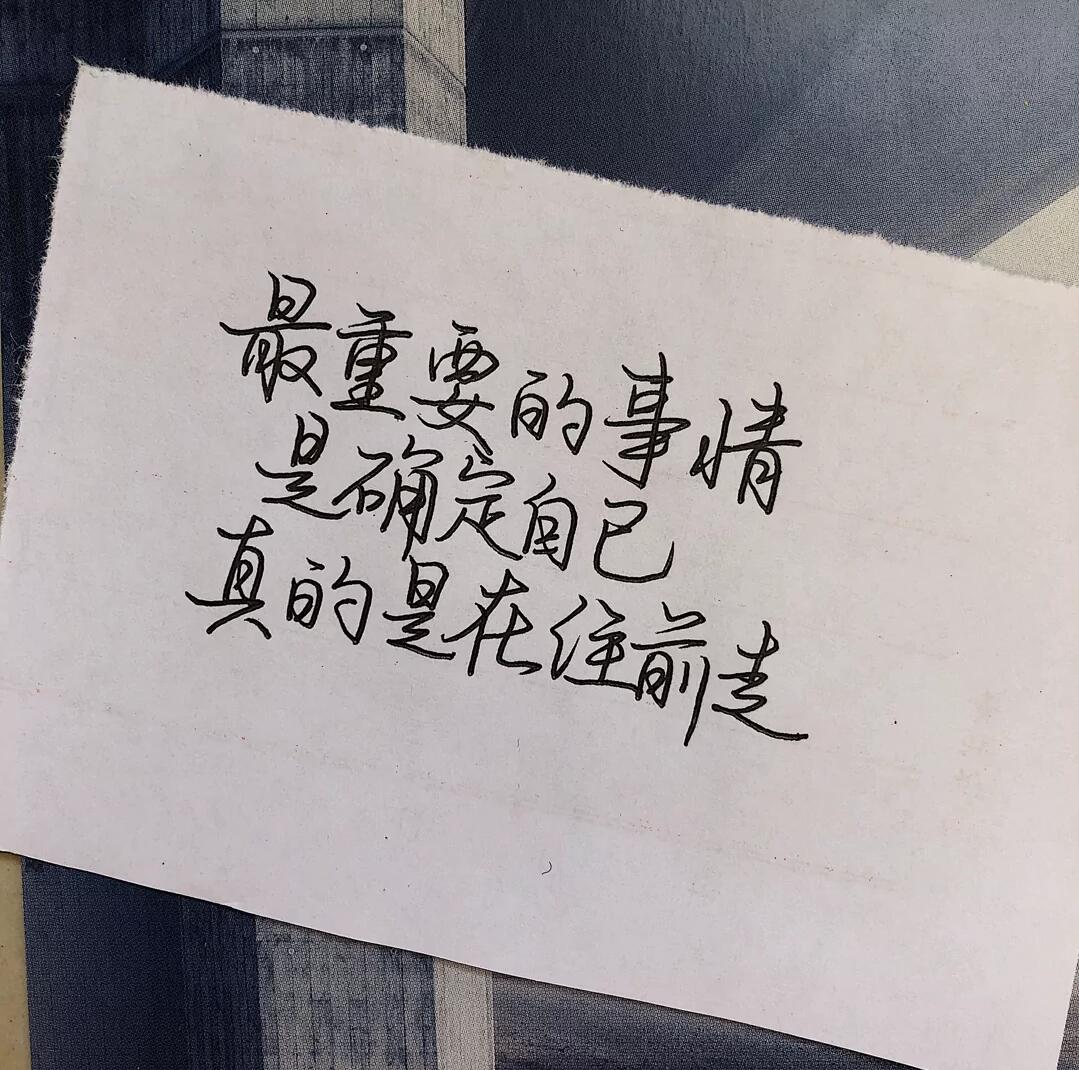 最重要的事情
是确定自己
真的是在往前走